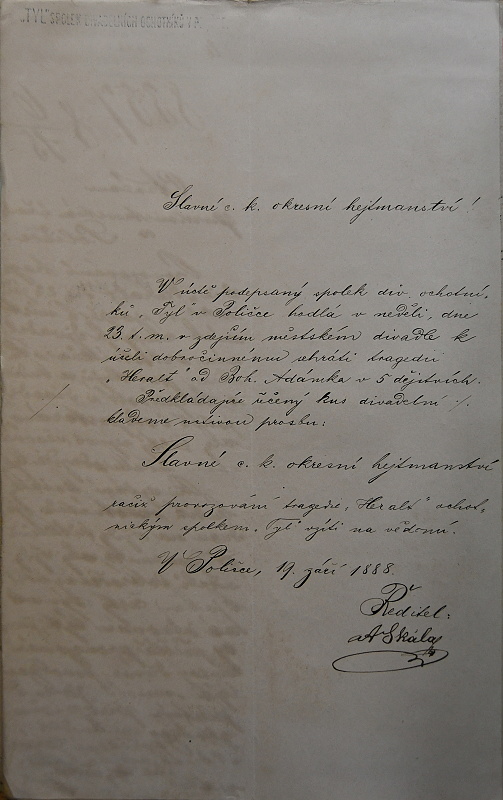 „TYL” SPOLEK DIVADELNÍCH OCHOTNÍKŮ V P.
Slavné c. k. okresní hejtmanství!
V úctě podepsaný spolek div. ochotní-
ků „Tyl" v Poličce hodlá v neděli, dne
23. t. m. v zdejším městském divadle k
účeli dobročinnemu sehráti tragedii
„Heralt" od Boh. Adámka v 5 dějstvích.
Předkládajíce řečený kus divadelní ·/.
klademe uctivou prosbu:
Slavné c. k. okresní hejtmanství
račiž provozování tragedie „Heralt" ochot-
nickým spolkem „Tyl" vzíti na vědomí.
V Poličce, 19. září 1888.
Ředitel:
A Skála